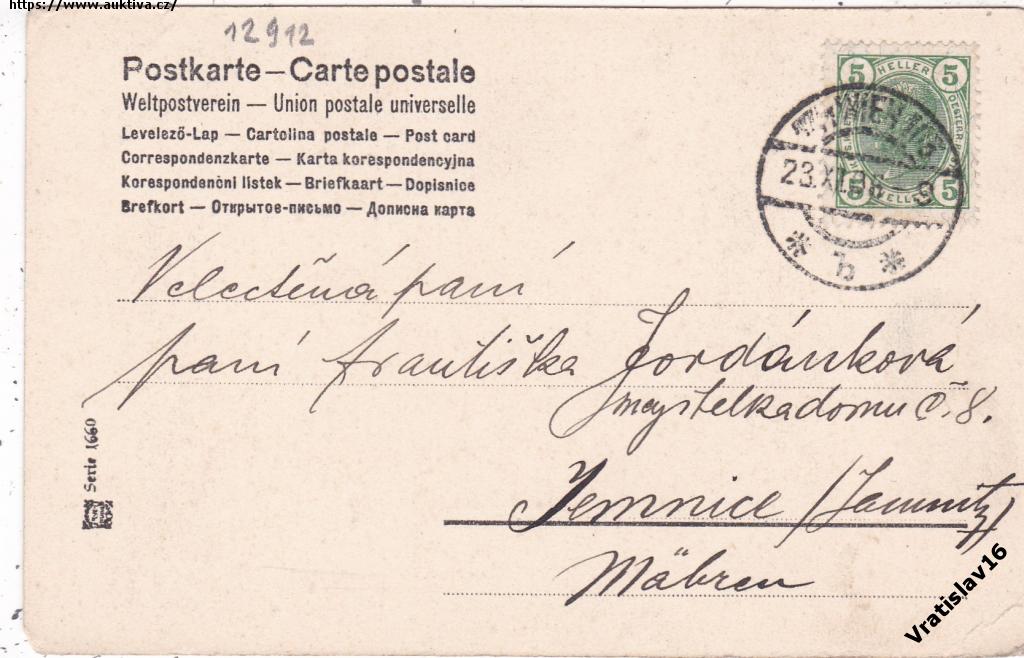 https://www.auktiva.cz/
12912
Postkarte — Carte postale
Weltpostverein — Union postale universelle
Levelező-Lap — Cartolina postale — Post card
Correspondenzkarte — Karta korespondencyjna
Korespondenčni lístek — Briefkaart — Dopisnice
Brefkort — Открытое-письмо — Дописна карта
5 HELLER 5
5 HELLER 5
WIEN
23.XI.
* b *
Velectěná paní
paní Františka Jordánková
majitelka domu č. 8.
Jemnice / Jamnitz /
Mähren
Serie 1660
Vratislav16